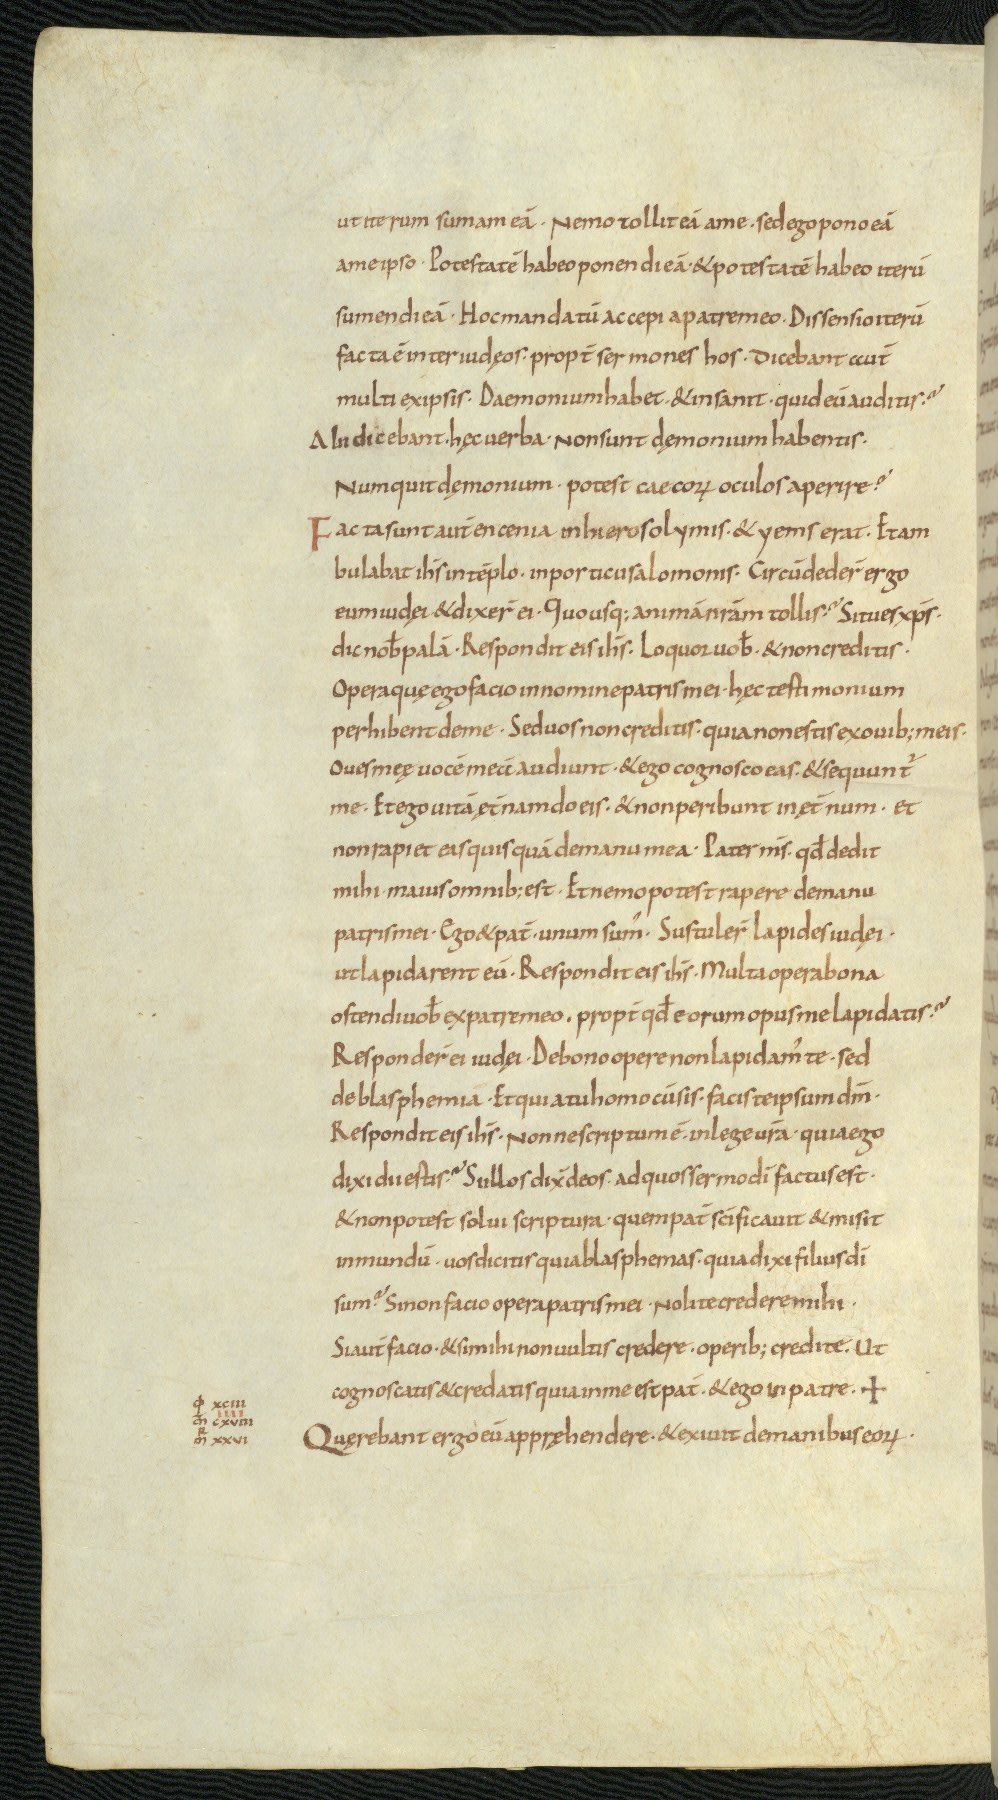 ut iterum sumam eā· Nemo tollit eā a me· sed ego pono eā
a me ipso· Potestatē habeo ponendi eā· & potestatē habeo iterū
sumendi eā· Hoc mandatū accepi a patre meo· Dissensio iterū
facta ē inter iudęos· propt̄ sermones hos· Dicebant aut̄
multi ex ipsis· Daemonium habet· & insanit· quid eū auditis?
Alii dicebant· hęc uerba· Non sunt dęmonium habentis·
Numquit dęmonium· potest caecoꝝ oculos aperire?
Facta sunt aut̄ encenia in hierosolymis· & yems erat· Et am
bulabat ih̄s in tēplo· in porticu salomonis· Circūdeder̄ ergo
eum iudęi· & dixer̄ ei· Quousq; animā nr̄am tollis? Si tu es xp̄s·
dic nob̄ palā· Respondit eis ih̄s· Loquor uob̄· & non creditis·
Opera quę ego facio in nomine patris mei· hęc testimonium
perhibent de me· Sed uos non creditis· quia non estis ex ouib; meis·
Oues męę uocē meā audiunt· & ego cognosco eas· & sequunt̄
me· Et ego uitā ęt̄nam do eis· & non peribunt in ęt̄num· et
non rapiet eas quisquā de manu mea· Pater m̄s· qd̄ dedit
mihi· maius omnib; est· Et nemo potest rapere de manu
patris mei· Ego & pat̄· unum sum̄· Sustuler̄ lapides iudęi·
ut lapidarent eū· Respondit eis ih̄s· Multa opera bona
ostendi uob̄ ex patre meo· propt̄ qd̄ eorum opus me lapidatis?
Responder̄ ei iudęi· De bono opere non lapidam̄ te· sed
de blasphemia· Et quia tu homo cū sis· facis te ipsum dm̄·
Respondit eis ih̄s· Nonne scriptum ē· in lege ur̄a· quia ego
dixi dii estis? Si illos dix̄ deos· ad quos sermo dī factus est·
& non potest solui scriptura· quem pat̄ sc̄ificauit & misit
in mundū· uos dicitis quia blasphemas· quia dixi filius dī
sum? Si non facio opera patris mei· Nolite credere mihi·
Si aut̄ facio· & si mihi non uultis credere· operib; credite· Ut
cognoscatis & credatis quia in me est pat̄· & ego in patre· +
xciii
cxviii
xxvi
Quęrebant ergo eū appręhendere· & exiuit de manibus eoꝝ·